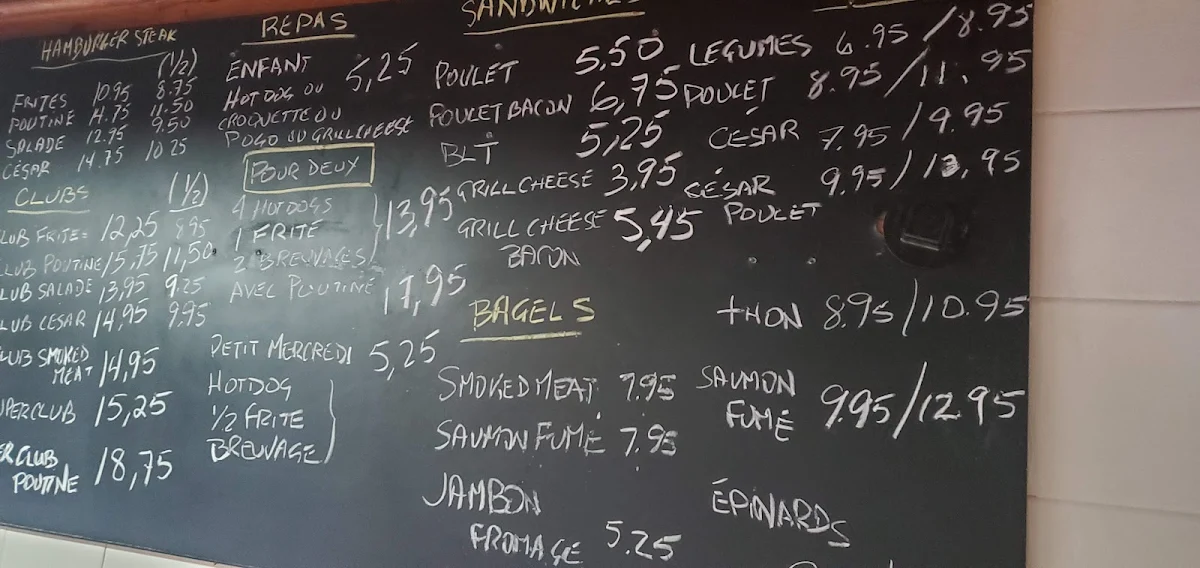 HAMBURGER STEAK
(1/2)
FRITES 10.95 8.75
POUTINE 14.75 11.50
SALADE 12.95 9.50
CÉSAR 14.75 10.25
CLUBS (1/2)
CLUB FRITES 12,25 8.95
CLUB POUTINE 15,75 11,50
CLUB SALADE 13,95 9.25
CLUB CESAR 14,95 9,95
CLUB SMOKED
MEAT 14,95
SUPERCLUB 15,25
CLUB
POUTINE 18,75
REPAS
ENFANT 5,25
HOTDOG OU
CROQUETTE OU
POGO OU GRILLCHEESE
POUR DEUX
4 HOTDOGS
1 FRITE 13,95
2 BREUVAGES
AVEC POUTINE 17,95
PETIT MERCREDI 5,25
HOTDOG
1/2 FRITE
BREUVAGE
SANDWICHES
POULET 5,50
POULET BACON 6,75
BLT 5,25
GRILLCHEESE 3,95
GRILLCHEESE 5,45
BACON
BAGELS
SMOKED MEAT 7.95
SAUMON FUMÉ 7.95
JAMBON
FROMAGE 5.25
LEGUMES 6.95/8.95
POULET 8.95/11.95
CÉSAR 7.95/9.95
CÉSAR 9.95/13,95
POULET
THON 8.95/10.95
SAUMON
FUMÉ 9.95/12.95
ÉPINARDS